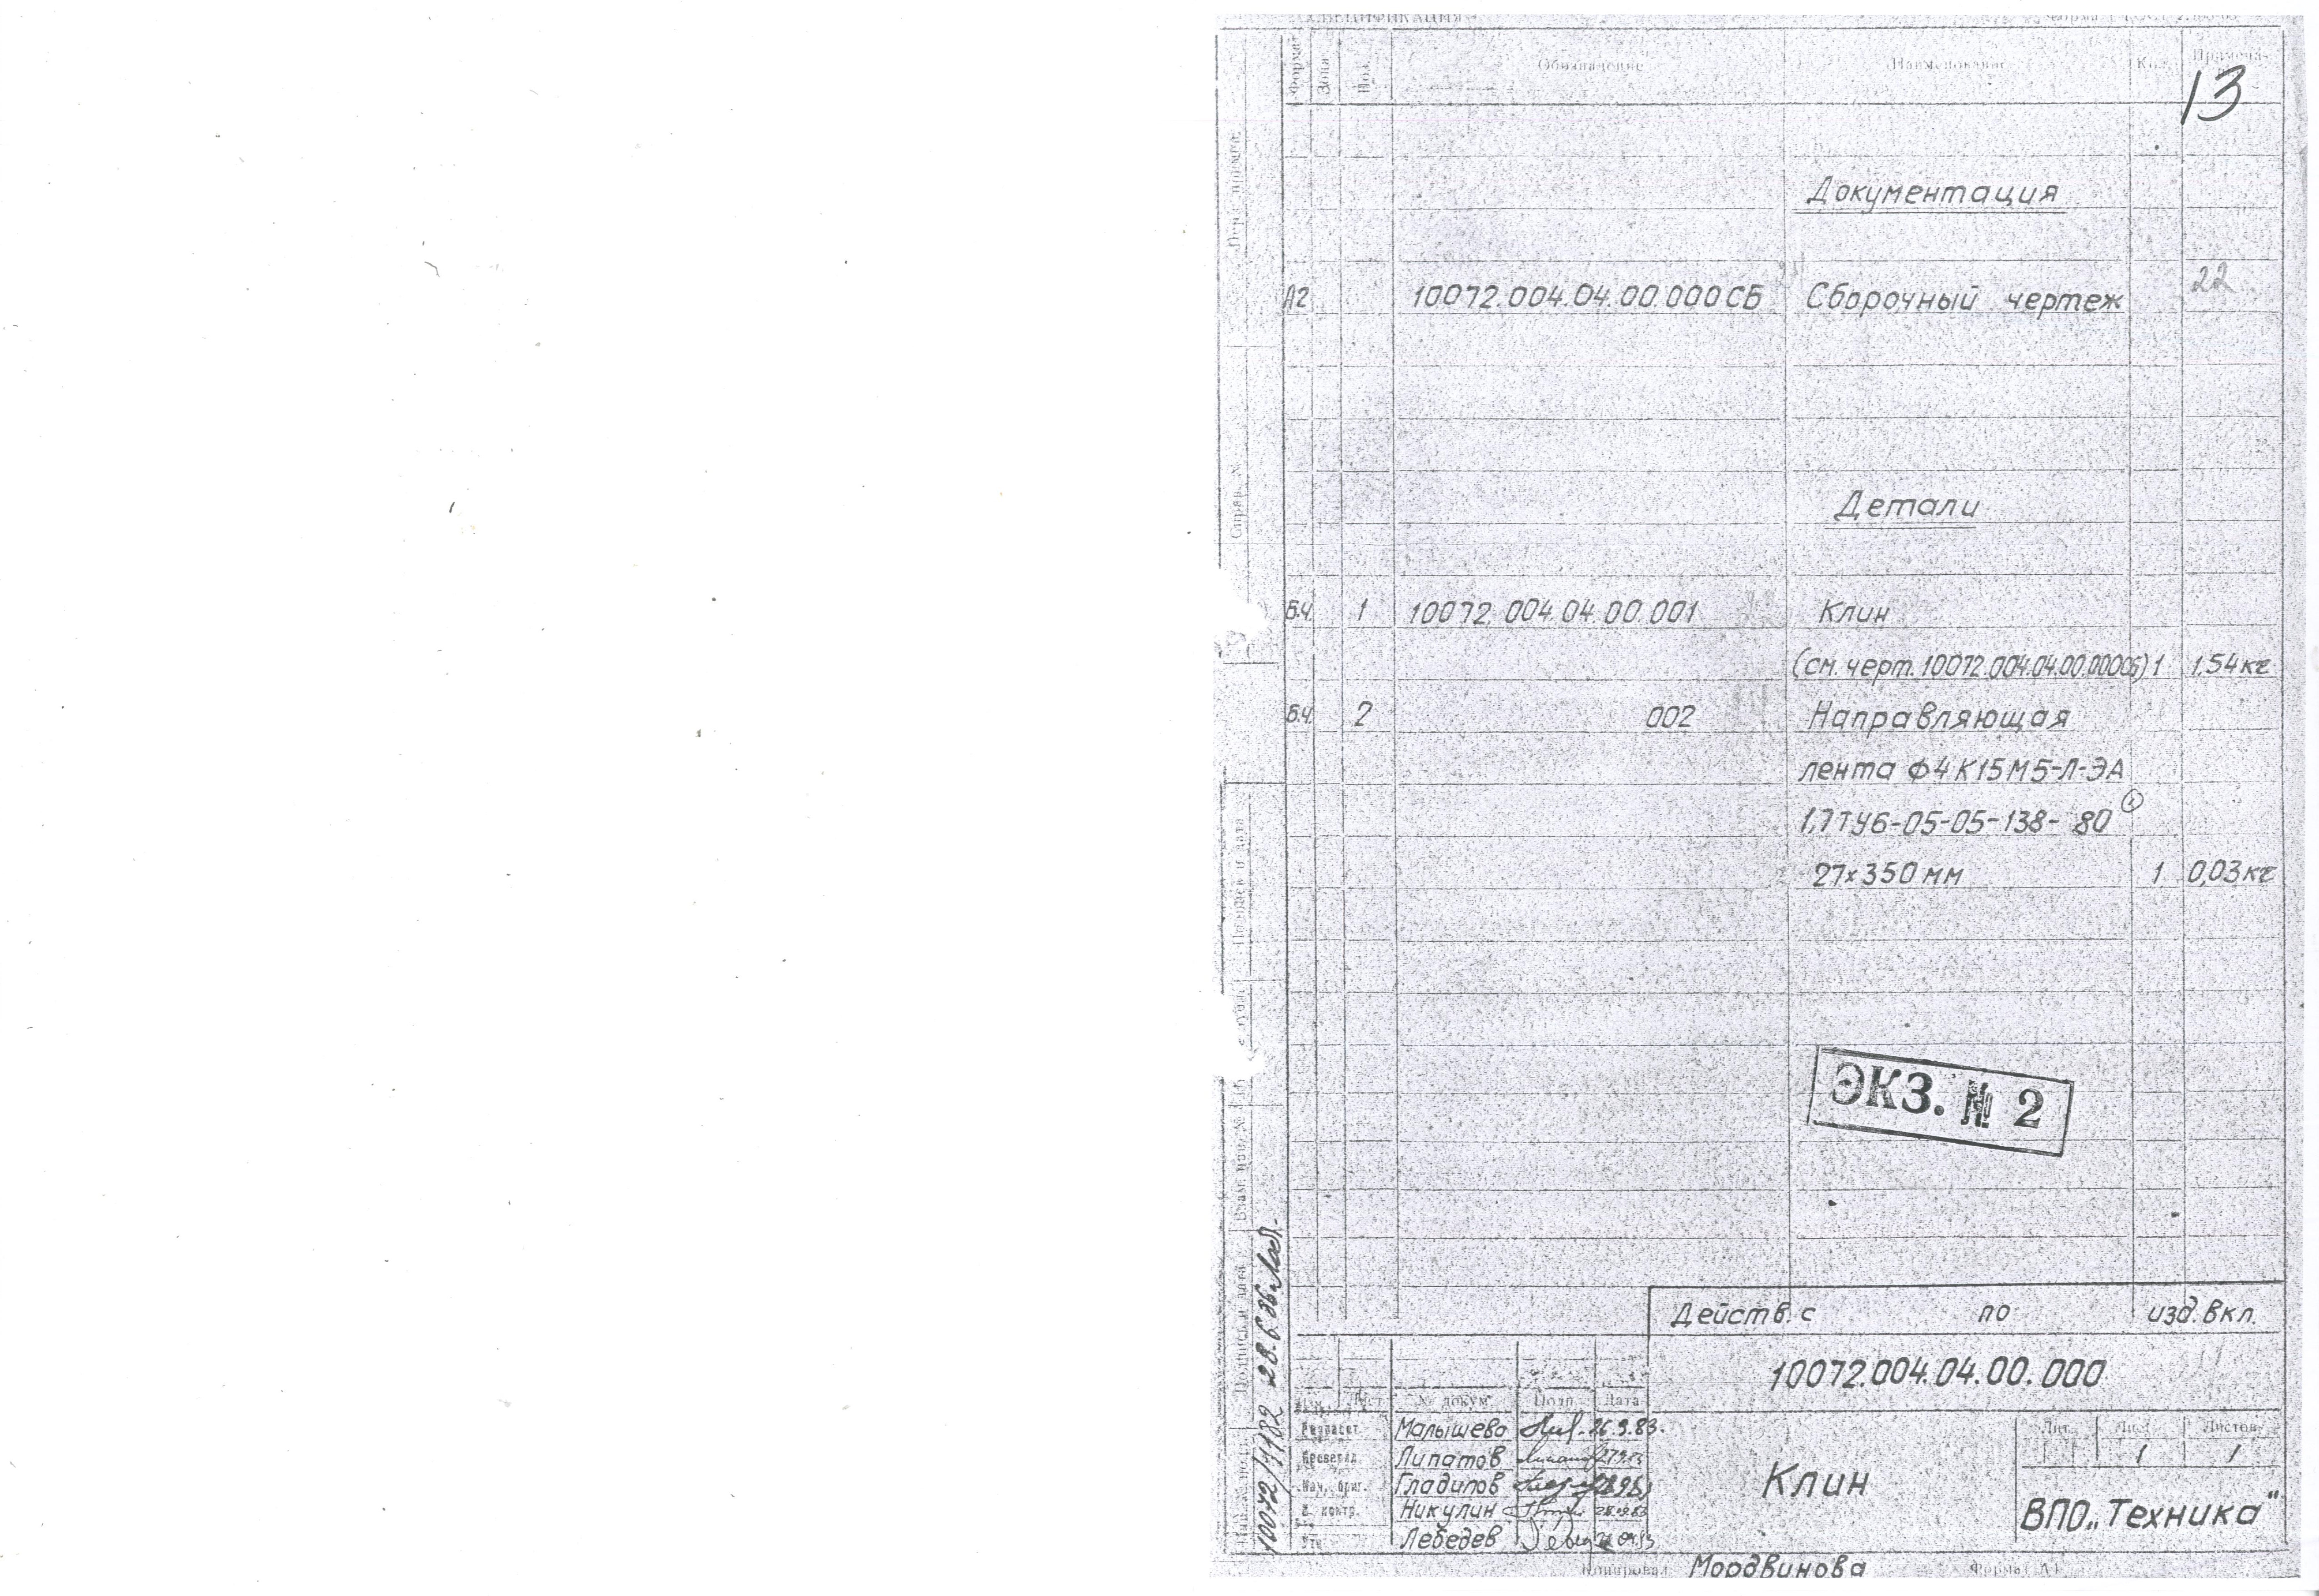 СПЕЦИФИКАЦИЯ
Формат Зона Поз. Обозначение Наименование Кол. Примеча-
13
Документация
А2 10072.004.04.00.000СБ Сборочный чертеж 22
Детали
Б.Ч. 1 10072.004.04.00.001 Клин
(см. черт. 10072.004.04.00.000СБ) 1 1,54кг
Б.Ч. 2 002 Направляющая
лента Ф4К15М5-Л-ЭА
1,7ТУ6-05-05-138-80
27×350 мм 1 0,03кг
ЭКЗ. № 2
Действ. с по изд. вкл.
10072.004.04.00.000
Лист № докум. Подп. Дата
Малышева 26.9.83.
Липатов
Гладилов
Н. контр. Никулин 28.09.83
Лебедев
Клин
Лит. Лист Листов
1 1
ВПО „Техника“
Копировал Мордвинова Формат А4
Перв. примен.
Справ. №
Подпись и дата
Взам. инв. №
Подпись и дата
10072/1182 28.6.86